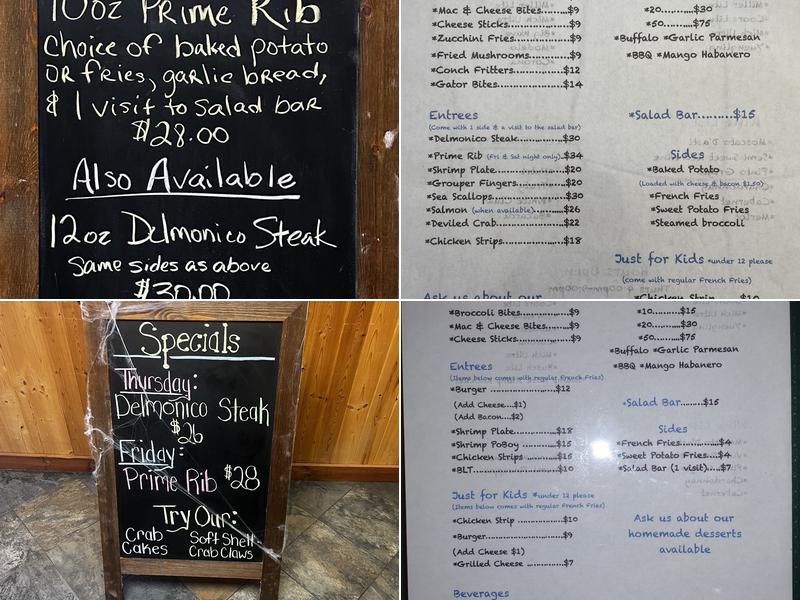 10oz Prime Rib
Choice of baked potato
OR fries, garlic bread,
& 1 visit to Salad bar
$28.00
Also Available
12oz Delmonico Steak
Same sides as above
$30.00
*Mac & Cheese Bites...............$9
*Cheese Sticks.....................$9
*Zucchini Fries....................$9
*Fried Mushrooms................$9
*Conch Fritters...................$12
*Gator Bites.......................$14
Entrees
(Come with 1 side & a visit to the salad bar)
*Delmonico Steak..................$30
*Prime Rib (Fri & Sat night only)...$34
*Shrimp Plate......................$20
*Grouper Fingers..................$20
*Sea Scallops......................$30
*Salmon (when available)..........$26
*Deviled Crab......................$22
*Chicken Strips....................$18
Ask us about our
*20............$30
*50............$75
*Buffalo *Garlic Parmesan
*BBQ *Mango Habanero
*Salad Bar.........$15
Sides
*Baked Potato
(Loaded with cheese & bacon $1.50)
*French Fries
*Sweet Potato Fries
*Steamed broccoli
Just for Kids *under 12 please
(come with regular French Fries)
*Chicken Strip $10
Specials
Thursday:
Delmonico Steak
$26
Friday:
Prime Rib $28
Try Our:
Crab Cakes
Soft Shell Crab Claws
*Broccoli Bites.....................$9
*Mac & Cheese Bites...............$9
*Cheese Sticks.....................$9
Entrees
(Items below comes with regular French Fries)
*Burger ......................$12
(Add Cheese...$1)
(Add Bacon...$2)
*Shrimp Plate................$18
*Shrimp PoBoy ..............$15
*Chicken Strips ..............$15
*BLT..........................$10
Just for Kids *under 12 please
(Items below comes with regular French Fries)
*Chicken Strip ...............$10
*Burger.......................$9
(Add Cheese $1)
*Grilled Cheese ..............$7
Beverages
*10............$15
*20............$30
*50............$75
*Buffalo *Garlic Parmesan
*BBQ *Mango Habanero
*Salad Bar......$15
Sides
*French Fries.............$4
*Sweet Potato Fries.....$4
*Salad Bar (1 visit)...$7
Ask us about our
homemade desserts
available